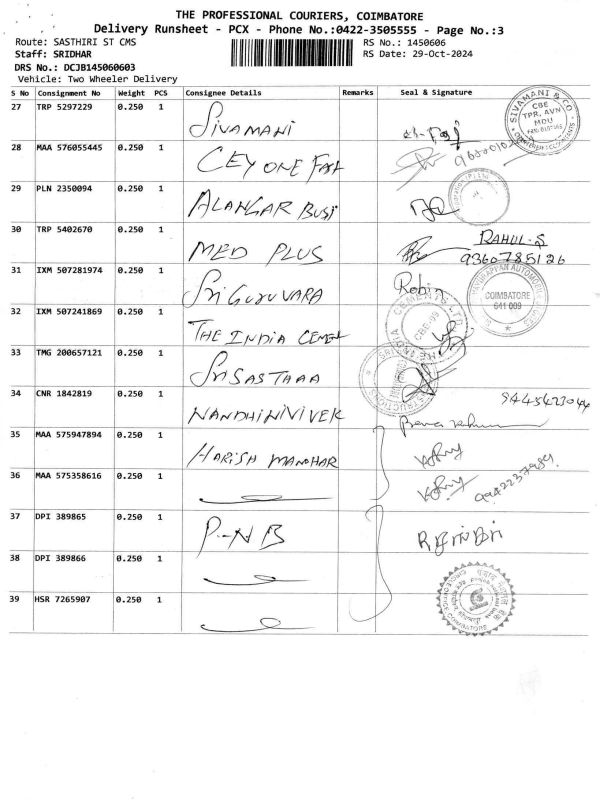 THE PROFESSIONAL COURIERS, COIMBATORE
Delivery Runsheet - PCX - Phone No.:0422-3505555 - Page No.:3
Route: SASTHIRI ST CMS RS No.: 1450606
Staff: SRIDHAR RS Date: 29-Oct-2024
DRS No.: DCJB145060603
Vehicle: Two Wheeler Delivery
S No Consignment No Weight PCS Consignee Details Remarks Seal & Signature
27 TRP 5297229 0.250 1 SIVAMANI
SIVAMANI & CO
CBE
TPR, AVN
MDU
CHARTERED ACCOUNTANTS
28 MAA 576055445 0.250 1 CEYONE FAS
29 PLN 2350094 0.250 1 ALANGAR BUSI
30 TRP 5402670 0.250 1 MED PLUS RAHUL-S
9360785126
31 IXM 507281974 0.250 1 Sri GURUVARA Robin
COIMBATORE
641 009
32 IXM 507241869 0.250 1 THE INDIA CEMEN
33 TMG 200657121 0.250 1 Sri SASTHAA
34 CNR 1842819 0.250 1 NANDHINIVIVEK 9445423044
35 MAA 575947894 0.250 1 HARISH MANOHAR
36 MAA 575358616 0.250 1
37 DPI 389865 0.250 1 P-NB
38 DPI 389866 0.250 1
39 HSR 7265907 0.250 1